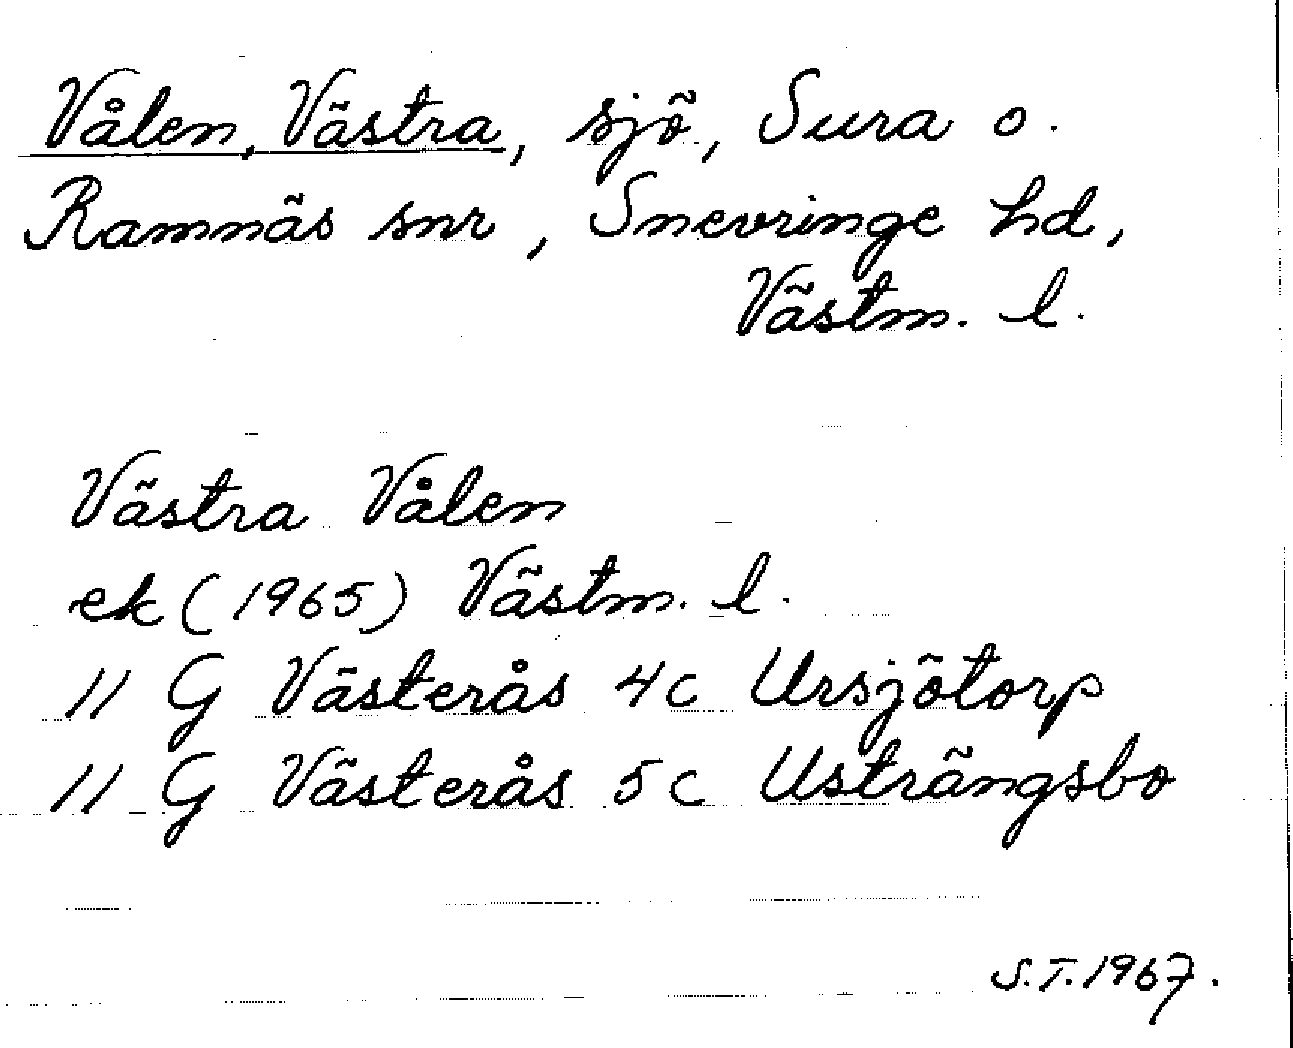 Vålen, Västra, sjö, Sura o.
Ramnäs snr, Snevringe hd,
Västm. l.
Västra Vålen
ek (1965) Västm. l.
11 G Västerås 4c Ursjötorp
11 G Västerås 5c Usträngsbo
S.T. 1967.